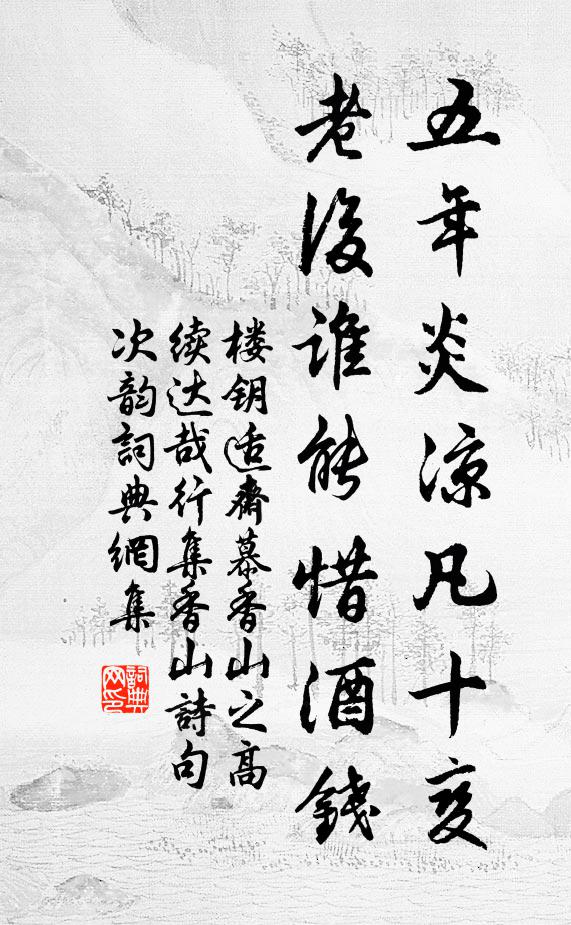 五年炎凉凡十变
老後谁能惜酒錢
楼钥适齋慕香山之高
续达哉行集香山詩句
次韵詞典網集
詞典
网印